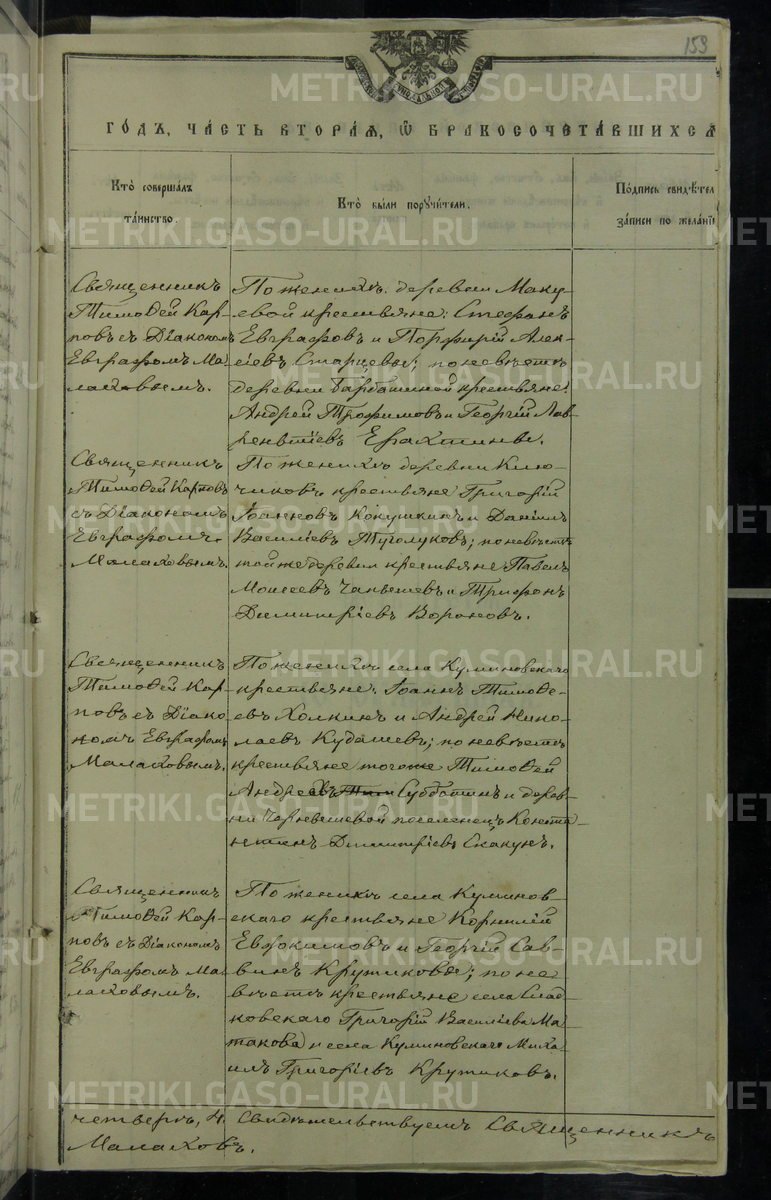 159
METRIKI.GASO-URAL.RU
го́дъ, ча́сть втора́я, ѡ҆ бракосочета́вшихся
Кто̀ соверша́лъ
та́инство.
Кто̀ бы́ли поручи́тели.
По́дпись свидѣ́тел
за́писи по жела́нїю
Священникъ
Тимоѳей Кар-
повъ съ Діакономъ
Евграфомъ Ма-
лаховымъ.
По женихѣ: деревни Маку-
евой крестьяне: Стефанъ
Евграфовъ и Порфирій Алек-
сіевъ Старцевы; по невѣстѣ
деревни Барбашиной крестьяне:
Андрей Трофимовъ и Георгій Лав-
рентіевъ Ерахтины.
Священникъ
Тимоѳей Карповъ
съ Діакономъ
Евграфомъ
Малаховымъ.
По женихѣ деревни Клю-
чиковъ крестьяне Григорій
Іоанновъ Кокушкинъ и Даніилъ
Василіевъ Туголуковъ; по невѣстѣ
той же деревни крестьяне Павелъ
Моисеевъ Чанышевъ и Трифонъ
Димитріевъ Вороновъ.
Священникъ
Тимоѳей Кар-
повъ съ Діако-
номъ Евграфомъ
Малаховымъ.
По женихѣ села Куминовскаго
крестьяне: Іоаннъ Тимоѳе-
евъ Холкинъ и Андрей Нико-
лаевъ Кудашевъ; по невѣстѣ
крестьяне тогоже Тимоѳей
Андреевъ Субботинъ и дерев-
ни Чернышевой поселенецъ Конста-
нтинъ Димитріевъ Скакунъ.
Священникъ
Тимоѳей Кар-
повъ съ Діакономъ
Евграфомъ Ма-
лаховымъ.
По женихѣ села Куминов-
скаго крестьяне Корнилій
Евдокимовъ и Георгій Сав-
винъ Крутиковы; по не
вѣстѣ крестьяне села Слад-
ковскаго Григорій Василіевъ Ма-
таковъ и села Куминовскаго Миха-
илъ Григоріевъ Крутиковъ.
четверъ, 4. Свидѣтельствуемъ Священникъ
Малаховъ.